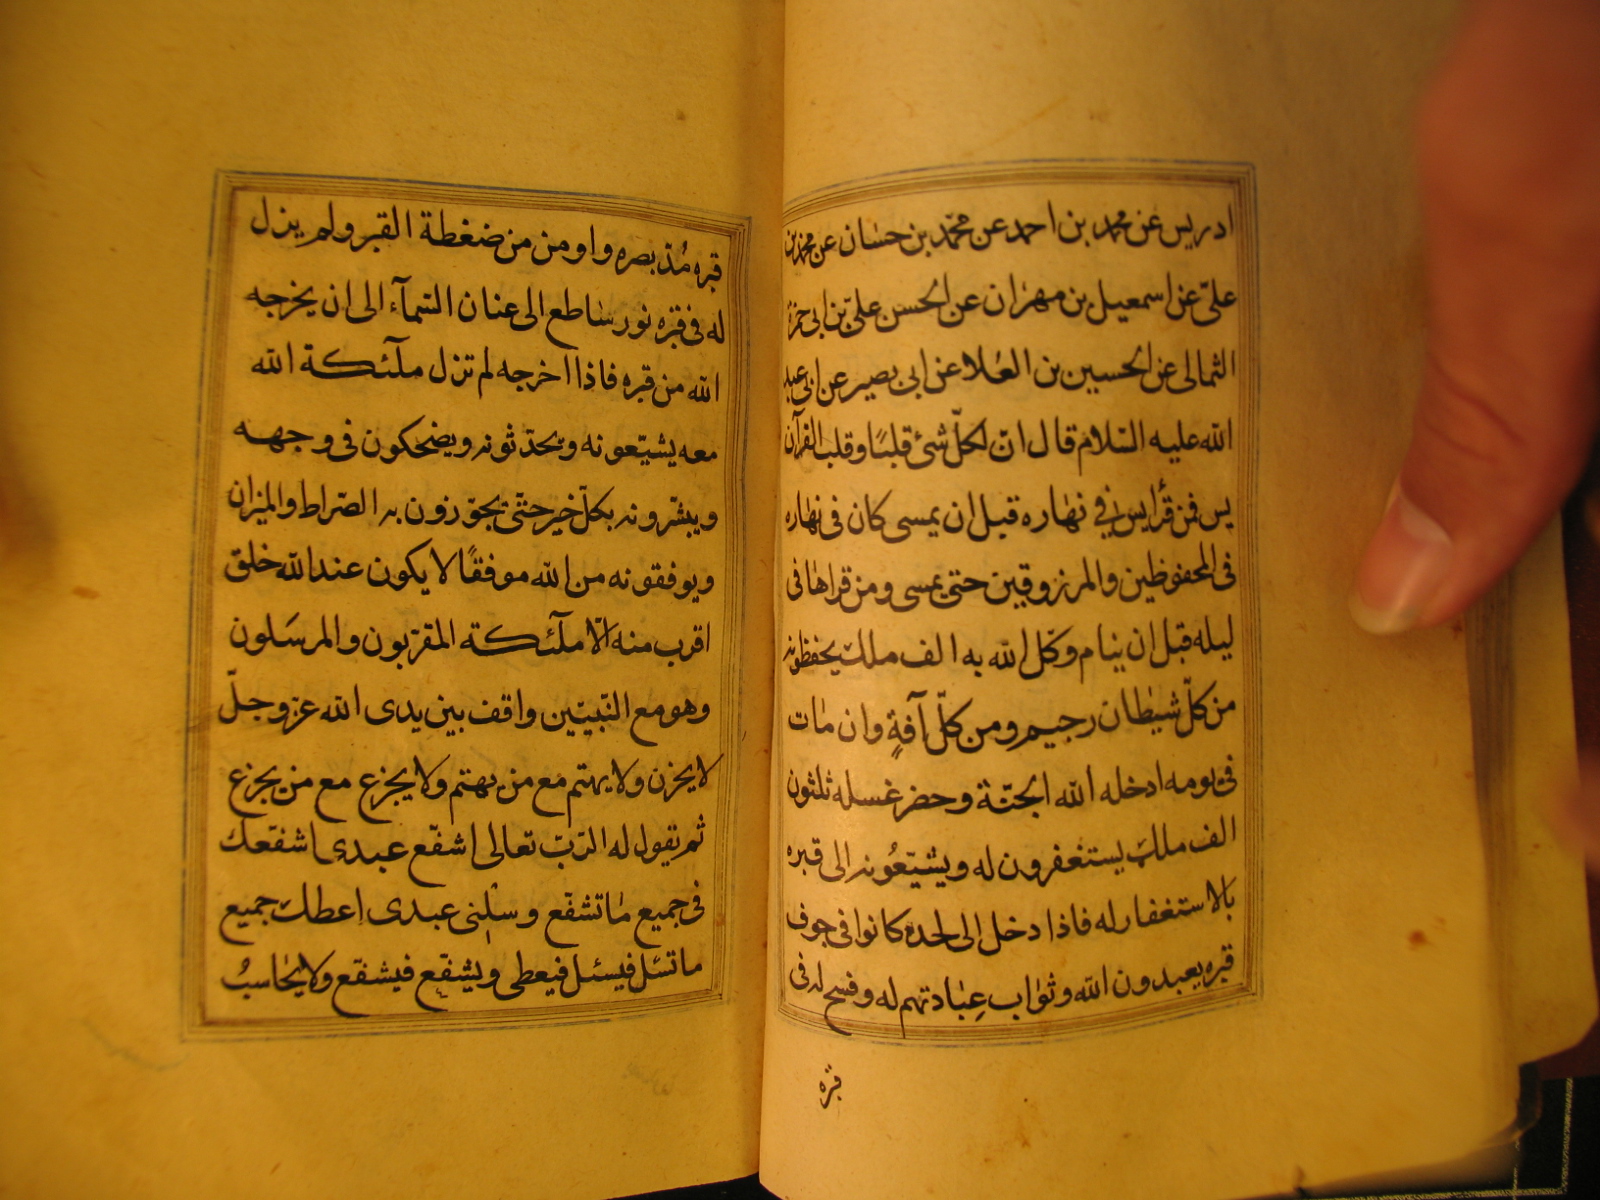 ادريس عن محمد بن احمد عن محمّد بن حسٰان عن محمد بن
علىّ عن اسمعيل بن مهرٰان عن الحسن علىّ بن ابى حمزة
الثمالى عن الحسين بن العٰلا عن ابى بصير عن ابى عبد
الله عليه السّلام قال انّ لكلّ شئ قلبًا و قلب القرآن
يس فمن قرأ يس فى نهٰاره قبل ان يمسى كان فى نهٰاره
فى المحفوظين والمرزوقين حتى يمسى ومن قراهٰا فى
ليله قبل ان ينام وكّل الله به الف ملك يحفظونه
من كلّ شيطٰان رجيم ومن كلّ آفةٍ وان مٰات
فى يومه ادخله الله الجنّة وحضر غسله ثلثون
الف ملك يستغفرون له ويشيّعُونه الى قبره
بالاستغفار له فاذا دخل الى لحده كانوا فى جوف
قبره يعبدون الله وثوٰاب عِبٰادتهم له وفسح له فى
قبره
قبره مُدّ بصره واومن من ضغطة القبر ولم يزل
له فى قبره نور سٰاطع الى عنان السّمآء الى ان يخرجه
الله من قبره فاذا اخرجه لم تزل ملآئكة الله
معه يشيّعونه ويحدّثونه ويضحكون فى وجهه
ويبشّرونه بكلّ خير حتّى يجوّزون به الصّراط والميزان
ويوفقونه من الله موفقًا لا يكون عند الله خلق
اقرب منه الّا ملآئكته المقرّبون والمرسَلون
وهو مع النّبيّين واقف بين يدى الله عزّ وجلّ
لا يحزن ولا يهتم مع من يهتم ولا يجزع مع من يجزع
ثم يقول له الرّبّ تعالى اشفّع عبدى اشفّعك
فى جميع مٰا تشفّع وسلْنى عبدى اعطك جميع
ما تسئل فيسئل فيعطى ويشفّع فيشفّع ولا يحٰاسبُ